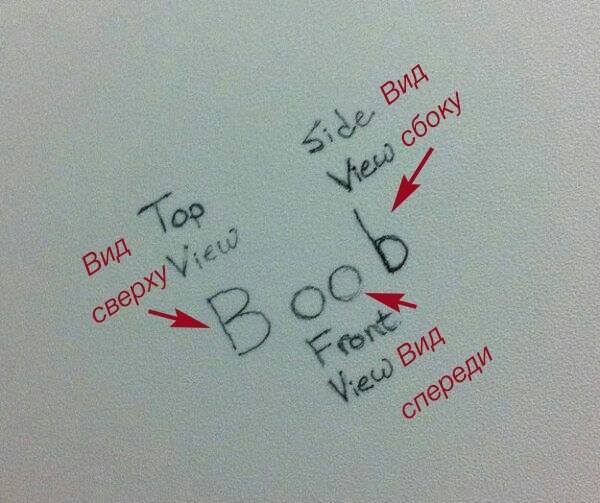 Side Вид
View сбоку
Вид Top
сверху View
Boob
Front
View Вид
спереди